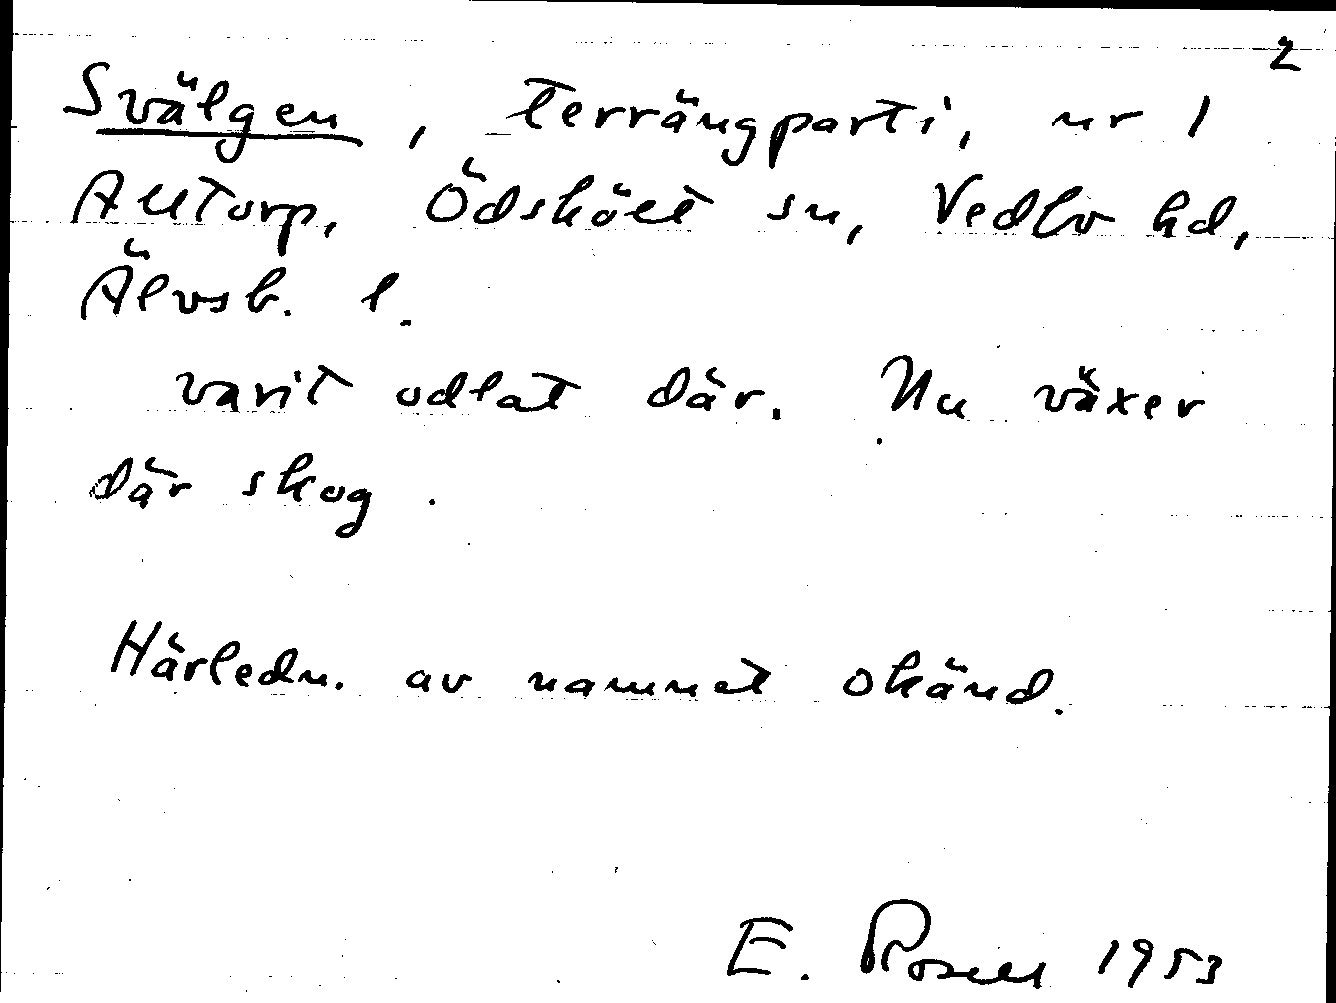 2
Svälgen, terrängparti, nr 1
Alltorp, Ödskölt sn, Vedbo hd,
Älvsb. l.
varit odlat där. Nu växer
där skog.
Härledn. av namnet okänd.
E. Rosell 1953